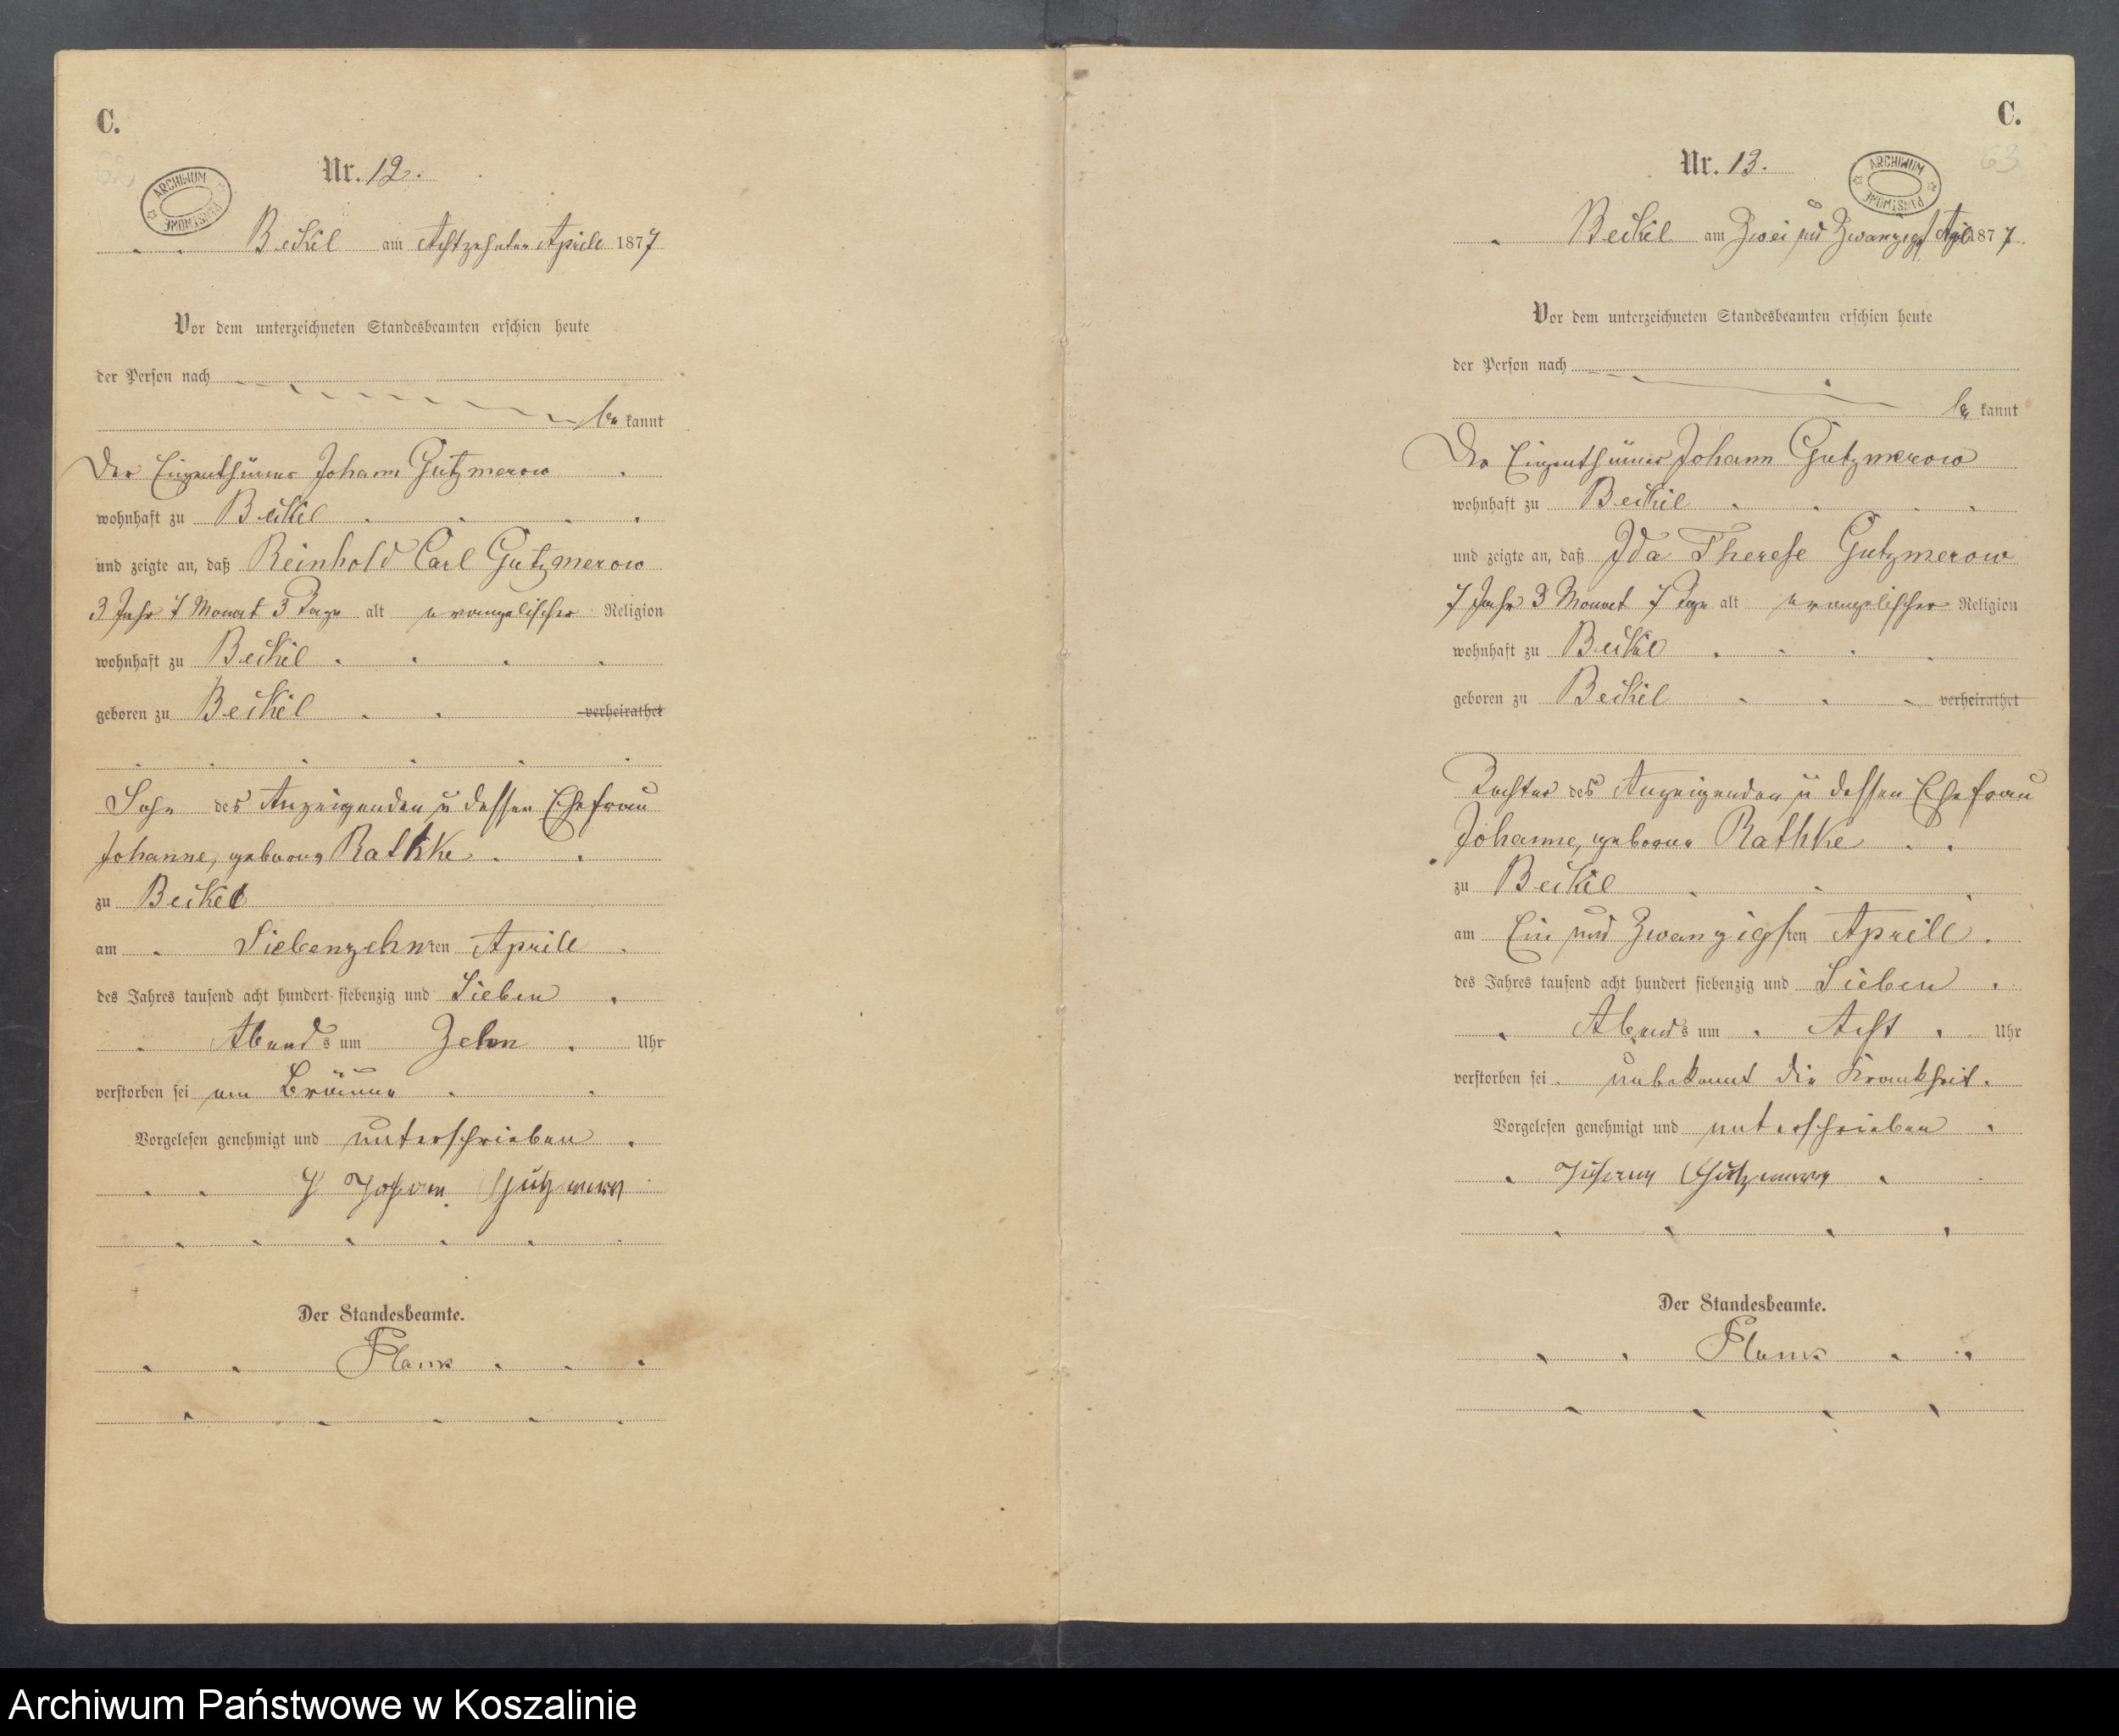 C.
Nr. 12.
ARCHIWUM PAŃSTWOWE
Beikel am Achtzehnten Aprill 1877
Vor dem unterzeichneten Standesbeamten erschien heute
der Person nach
be kannt
Der Eigenthümer Johann Gutzmerow
wohnhaft zu Beikel
und zeigte an, daß Reinhold Carl Gutzmerow
3 Jahr 7 Monat 3 Tage alt evangelischer Religion
wohnhaft zu Beikel
geboren zu Beikel verheirathet
Sohn des Anzeigenden u dessen Ehefrau
Johanne, geborne Rathke
zu Beikel
am Siebenzehnten Aprill
des Jahres tausend acht hundert siebenzig und Sieben
Abends um Zehn Uhr
verstorben sei an Bräune
Vorgelesen genehmigt und unterschrieben
Johann Gutzmerow
Der Standesbeamte.
C.
63
Nr. 13.
ARCHIWUM PAŃSTWOWE
Beikel am Zwei und Zwanzigst April 1877.
Vor dem unterzeichneten Standesbeamten erschien heute
der Person nach
be kannt
Der Eigenthümer Johann Gutzmerow
wohnhaft zu Beikel
und zeigte an, daß Ida Therese Gutzmerow
7 Jahr 3 Monat 7 Tage alt evangelischer Religion
wohnhaft zu Beikel
geboren zu Beikel verheirathet
Tochter des Anzeigenden u dessen Ehefrau
Johanne, geborne Rathke
zu Beikel
am Ein und Zwanzigsten Aprill
des Jahres tausend acht hundert siebenzig und Sieben
Abends um Acht Uhr
verstorben sei unbekannt die Krankheit.
Vorgelesen genehmigt und unterschrieben
Johann Gutzmerow
Der Standesbeamte.
Archiwum Państwowe w Koszalinie